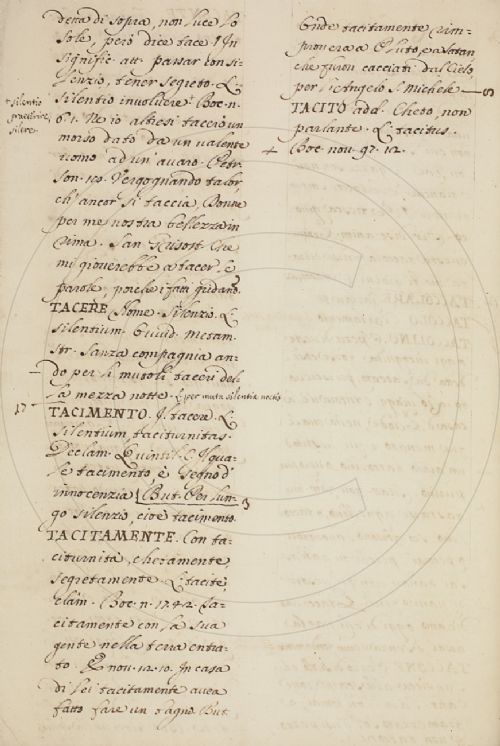 detta di sopra, non luce lo
Sole, però dice tace. § In
signific. att. passar con si=
lenzio, tener segreto. L.
silentio involvere. Boc. n.
+ silentio
praeterire,
silere.
61. Ne io altresì tacerò un
morso dato da un valente
uomo ad un avaro. Petr.
son. 120. Vergognando talor,
ch'ancor si taccia, Donne
per me nostra bellezza in
rima. San Grisost. Che
mi gioverebbe a tacer le
parole, poiche i fatti gridano.
TACERE Nome. Silenzio. L.
silentium. Ovvid. metam.
str. Sanza compagnia an=
do per li mutoli taceri del=
la mezza notte. L. per muta silentia noctis
17
TACIMENTO. Il tacere. L.
silentium, taciturnitas.
Declam. Quintil. C. Il qua=
le tacimento, è segno d'
innocenzia. But. Per lun=
go silenzio, cioè tacimento.
TACITAMENTE. Con ta=
citurnità, chetamente,
segretamente. L. tacite,
clàm. Boc. n. 17. 42. Ta=
citamente con la sua
gente nella terra entra=
to. E nov. 12. 10. In casa
di lei tacitamente avea
fatto fare un bagno. But.
Onde tacitamente rim=
provera a Pluto, e a Satan
che furon cacciati dal Cielo
per l'Angelo S. Michele.
TACITO add. Cheto, non
parlante. L. tacitus.
+ Boc. nov. 97. 12.